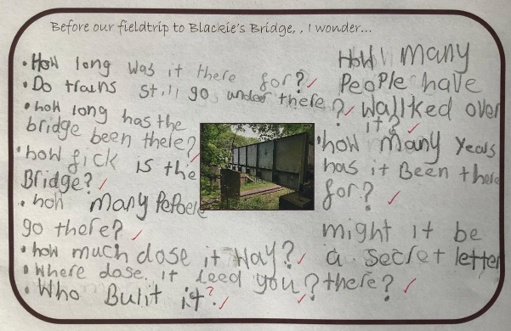 Before our fieldtrip to Blackie's Bridge, . I wonder...
• How long was it there for?
• Do trains still go under there?
• how long has the
bridge been there?
• how fick is the
Bridge?
• how many Pepoele
go there?
• how much dose it Way?
• Where dose it leed you?
• Who Bulit it?
How many
People have
wallked over
it?
• how many Years
has it Been there
for?
might it be
a secret letter
there?